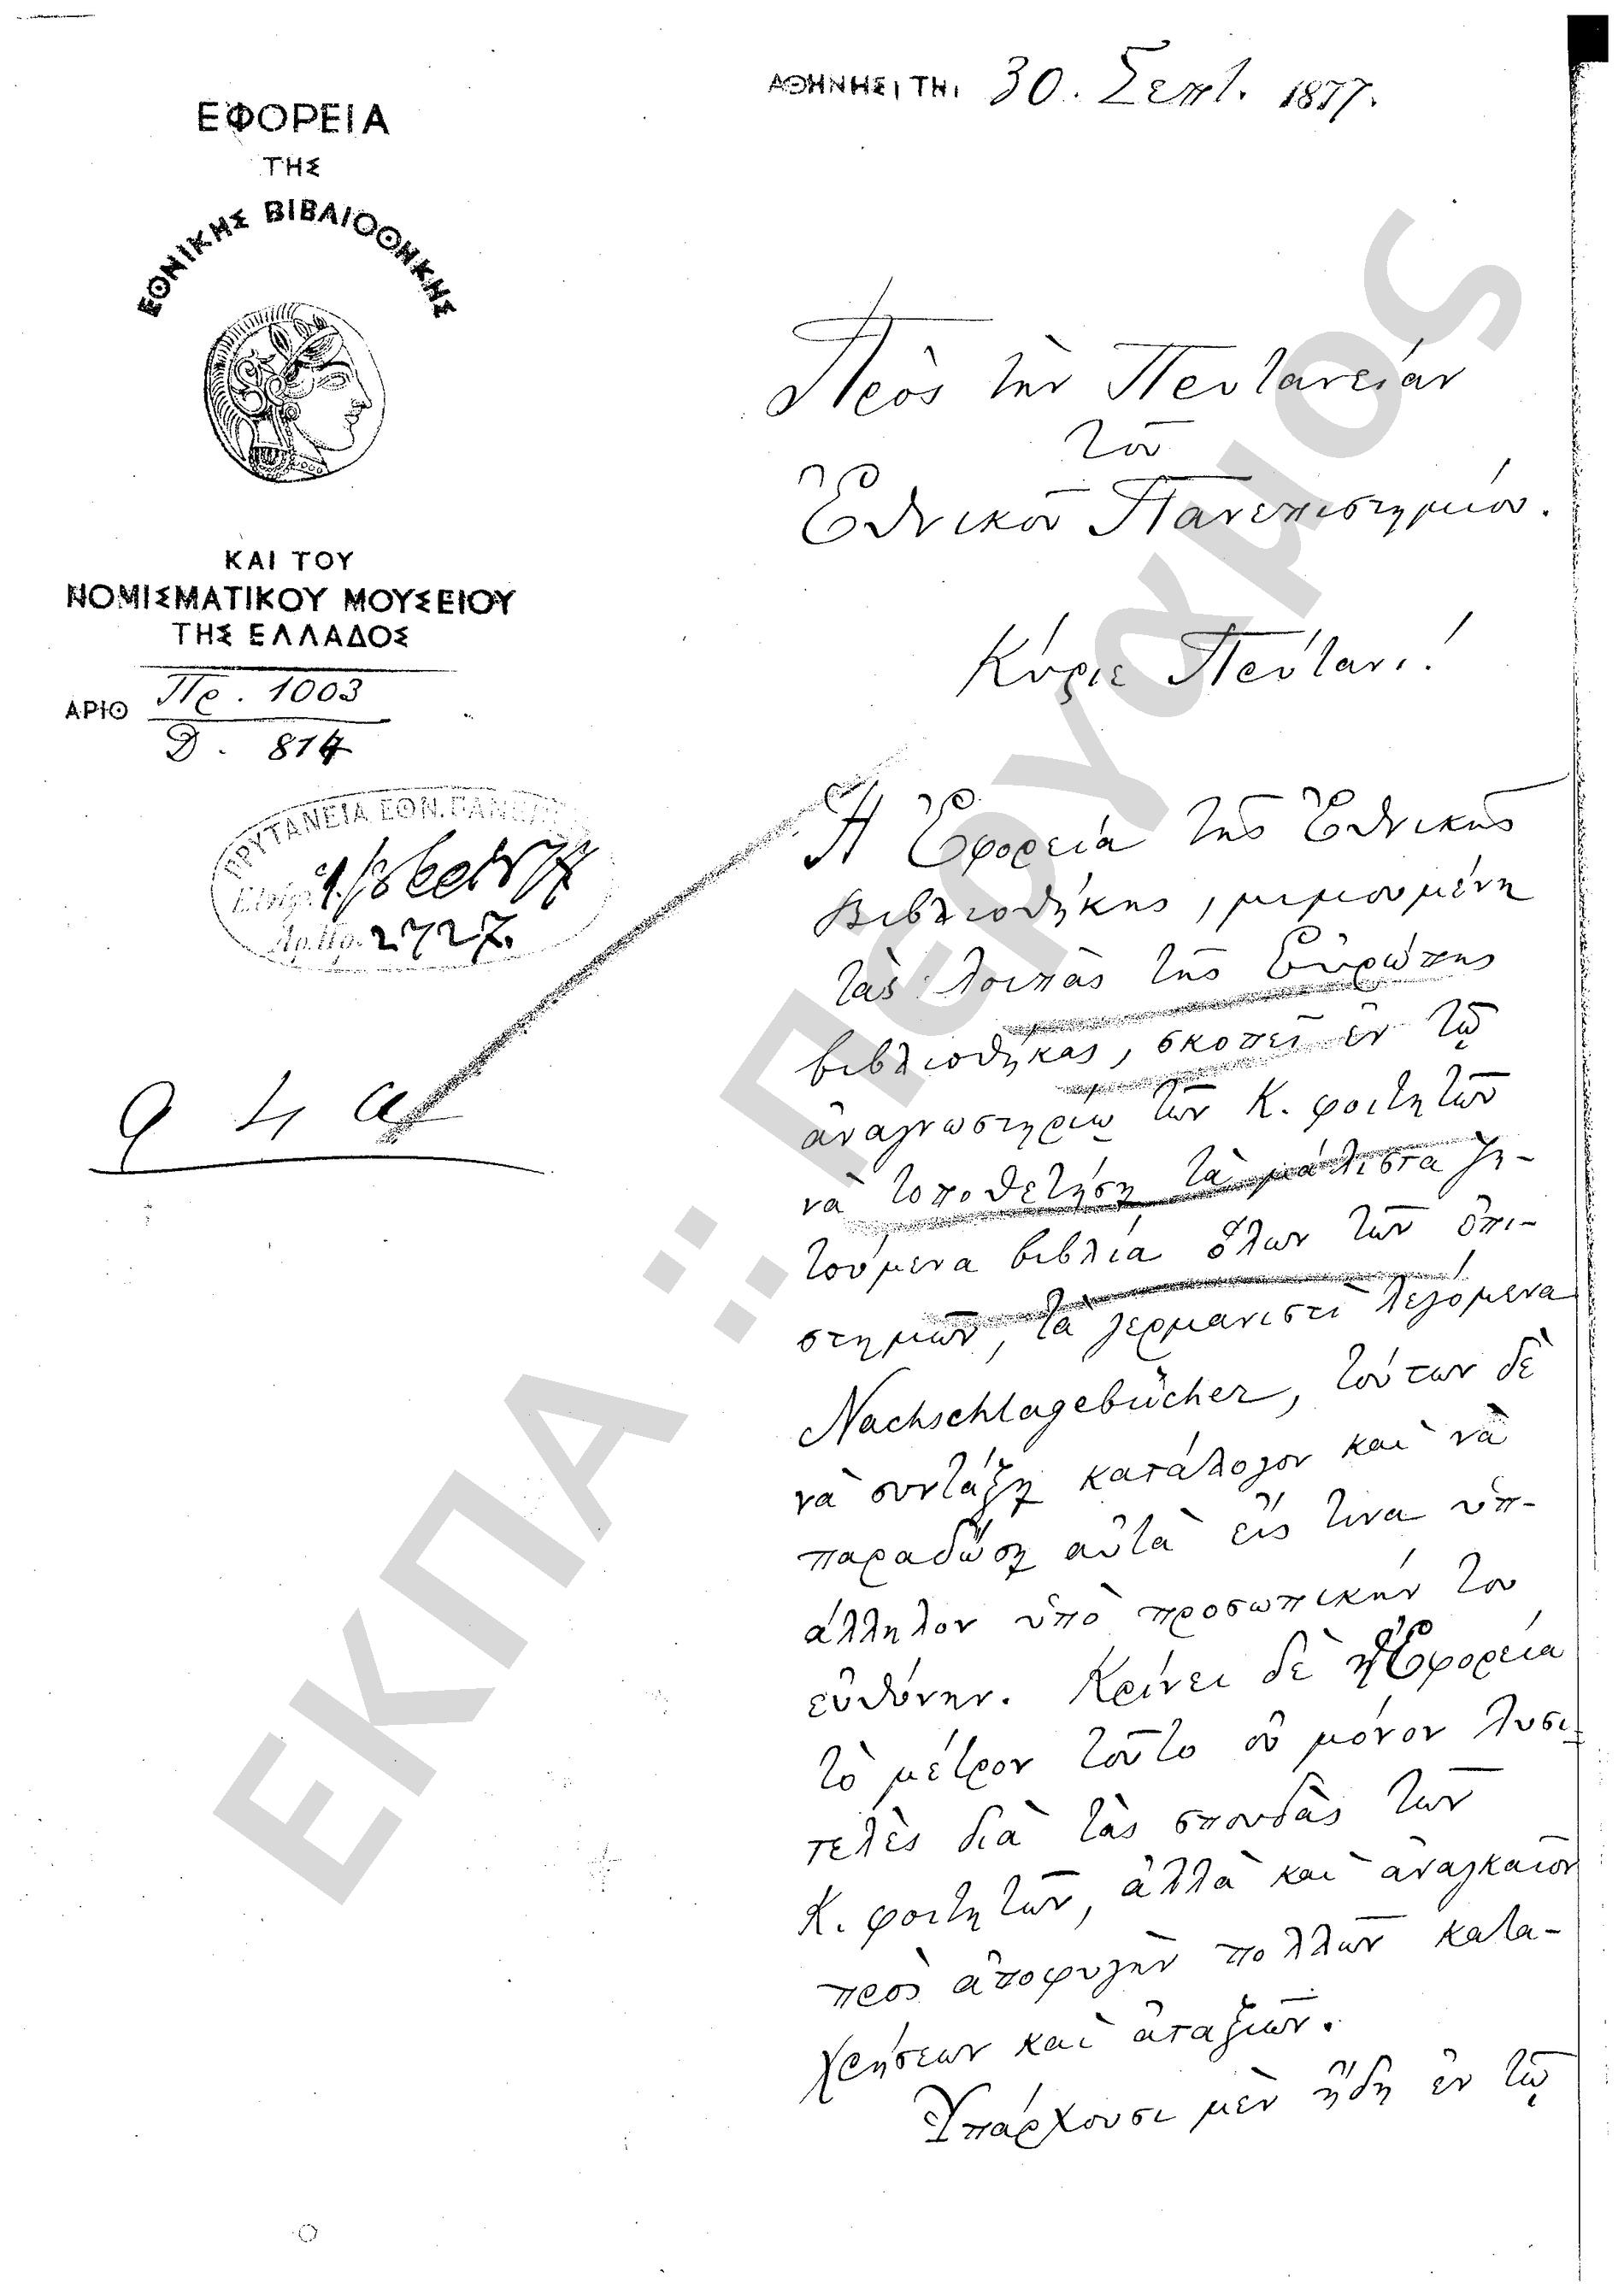 ΕΦΟΡΕΙΑ
ΤΗΣ
ΕΘΝΙΚΗΣ ΒΙΒΛΙΟΘΗΚΗΣ
ΚΑΙ ΤΟΥ
ΝΟΜΙΣΜΑΤΙΚΟΥ ΜΟΥΣΕΙΟΥ
ΤΗΣ ΕΛΛΑΔΟΣ
ΑΡΙΘ Πρ. 1003
Δ. 814
ΠΡΥΤΑΝΕΙΑ ΕΘΝ. ΠΑΝΕΠ
Αρ. Πρ. 2727.
ΑΘΗΝΗΣΙ ΤΗΙ 30. Σεπτ. 1877.
Πρὸς τὴν Πρυτανείαν
τοῦ
Ἐθνικοῦ Πανεπιστημίου.
Κύριε Πρύτανι!
Ἡ Ἐφορεία τῆς Ἐθνικῆς
Βιβλιοθήκης, μιμουμένη
τὰς λοιπὰς τῆς Εὐρώπης
βιβλιοθήκας, σκοπεῖ ἐν τῷ
ἀναγνωστηρίῳ τῶν Κ. φοιτητῶν
νὰ τοποθετήσῃ τὰ μάλιστα ζη-
τούμενα βιβλία ὅλων τῶν ἐπι-
στημῶν, τὰ γερμανιστὶ λεγόμενα
Nachschlagebücher, τούτων δὲ
νὰ συντάξῃ κατάλογον καὶ νὰ
παραδώσῃ αὐτὰ εἴς τινα ὑπ-
άλληλον ὑπὸ προσωπικήν του
εὐθύνην. Κρίνει δὲ ἡ Ἐφορεία
τὸ μέτρον τοῦτο οὐ μόνον λυσι-
τελὲς διὰ τὰς σπουδὰς τῶν
Κ. φοιτητῶν, ἀλλὰ καὶ ἀναγκαῖον
πρὸς ἀποφυγὴν πολλῶν κατα-
χρήσεων καὶ ἀταξιῶν.
Ὑπάρχουσι μὲν ἤδη ἐν τῷ
ΕΚΠΑ :: Πέργαμος